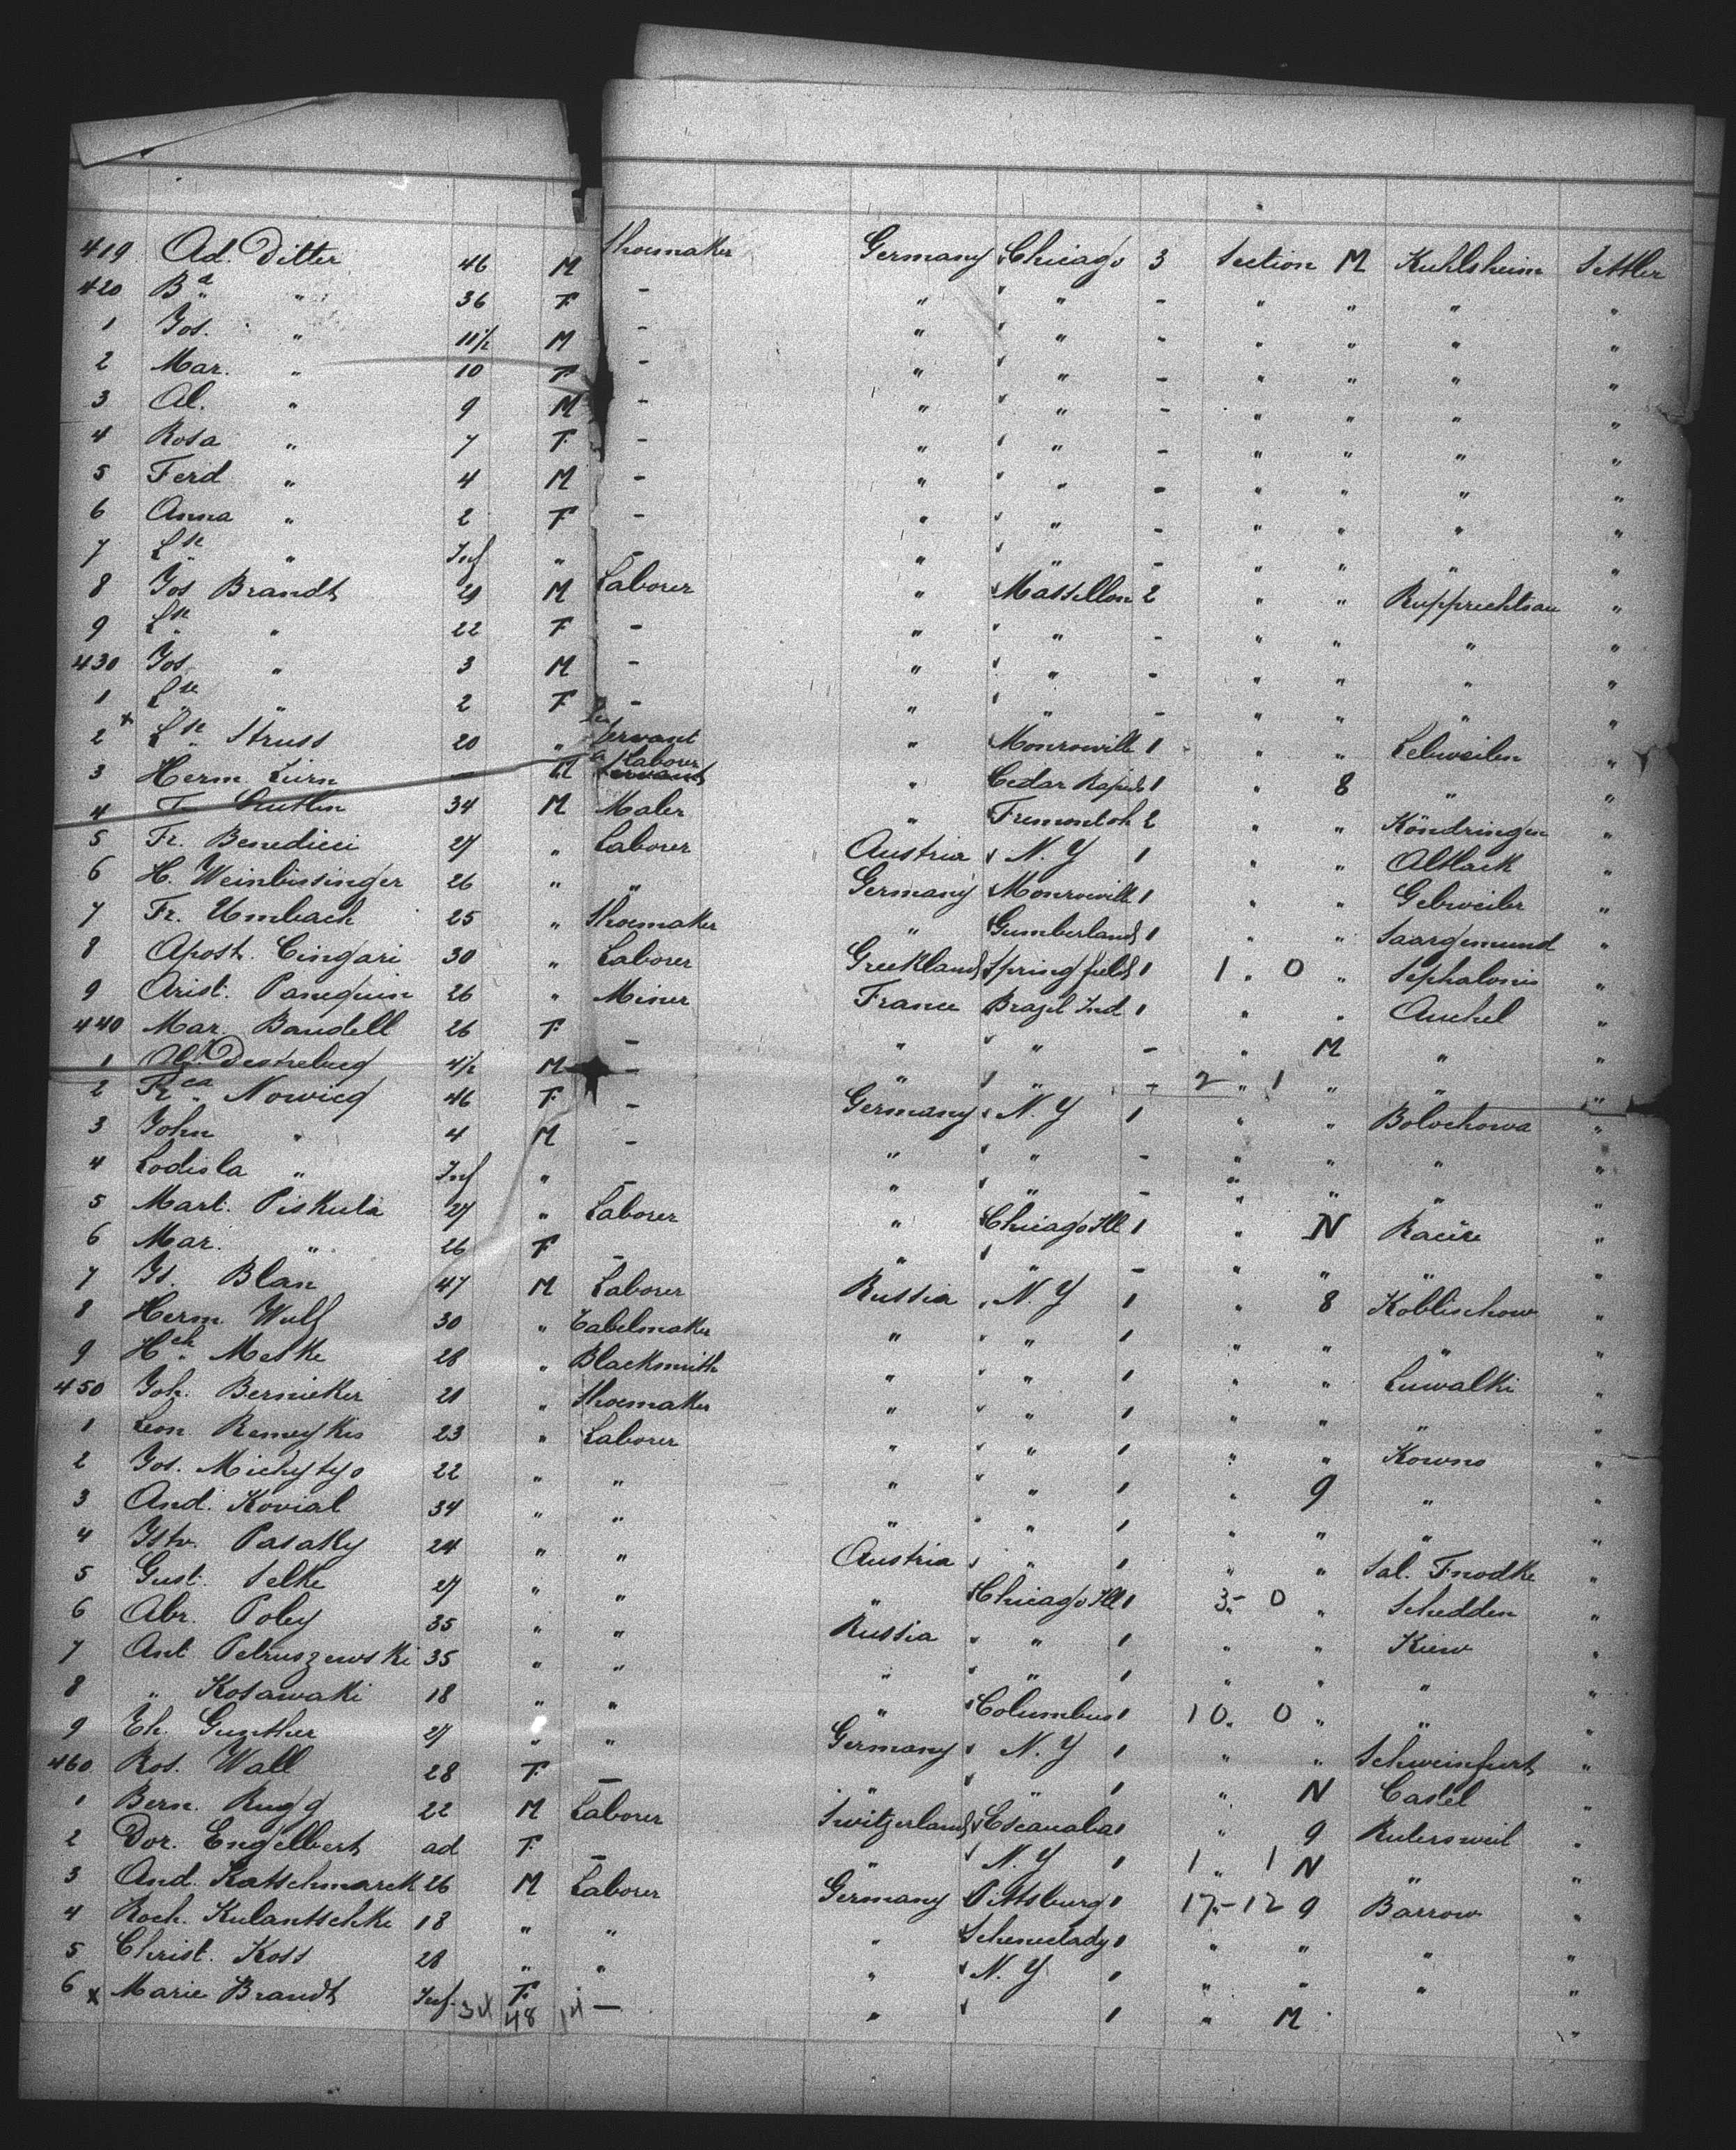 419 Ad. Ditter 46 M Shoemaker Germany Chicago 3 Section M Kuhlsheim Settler
420 Ba " 36 F - " " - " " " "
1 Jos. " 11 1/2 M - " " - " " " "
2 Mar. " 10 F - " " - " " " "
3 Al. " 9 M - " " - " " " "
4 Rosa " 7 F - " " - " " " "
5 Ferd " 4 M - " " - " " " "
6 Anna " 2 F - " " - " " " "
7 Lse " Inf " - " " - " " " "
8 Jos Brandt 29 M Laborer " Massillon 2 " " Rupprechtsau "
9 Lse " 22 F - " " - " " " "
430 Jos " 3 M - " " - " " " "
1 Lse " 2 F - " " - " " " "
2 x Lse Struss 20 " Servant " Monroville 1 " " "
3 Herm. - M Laborer " Cedar Rapids 1 " 8 " "
4 34 M Maler " Fremont oh 2 " " Köndringen "
5 Fr. Benedicci 27 " Laborer Austria N.Y 1 " " Altlack "
6 H. Weinbissinger 26 " " Germany Monroville 1 " " Gebweiler "
7 Fr. Umbach 25 " Shoemaker " Cumberland 1 " " Saargemund "
8 Apost. Cingari 30 " Laborer Greekland Springfield 1 1 " 0 " Sephalonis "
9 Arist. Panequin 26 " Miner France Brazil Ind 1 " " Auchel "
440 Mar. Baudell 26 F - " " - " M " "
1 4 1/2 M - " " - 2 " 1 " " "
2 Frca Nowicq 46 F - Germany N.Y 1 " " Bolochowa "
3 John " 4 M - " " - " " " "
4 Lodisla " Inf " - " " - " " " "
5 Mart. Piskula 27 " Laborer " Chicago Ill 1 " N Racire "
6 Mar. " 26 F - " " - " " " "
7 Is. Blan 47 M Laborer Russia N.Y 1 " 8 Koblischow "
8 Herm. Wulf 30 " Tabelmaker " " 1 " " " "
9 Hch Meske 28 " Blacksmith " " 1 " " Suwalki "
450 Joh. Bernicker 21 " Shoemaker " " 1 " " " "
1 Leon Remeykis 23 " Laborer " " 1 " " Kowno "
2 Jos. Michytyo 22 " " " " 1 " 9 " "
3 And. Kovial 34 " " " " 1 " " " "
4 Istv. Pasaky 24 " " Austria " 1 " " Sal. Fnodke "
5 Gust. Selke 27 " " " Chicago Ill 1 3 - 0 " Schedden "
6 Abr. Poley 35 " " Russia " 1 " " Kiew "
7 Ant Petruszewski 35 " " " " 1 " " " "
8 " Kosawaki 18 " " " Columbus 1 10 " 0 " " "
9 Th. Gunther 27 " " Germany N.Y 1 " " Schweinfurt "
460 Ros. Wall 28 F - " " 1 " N Cassel "
1 Bern. Rugg 22 M Laborer Switzerland Escanaba 1 " 9 Rulersweil "
2 Dor. Engelbert ad F - " N.Y 1 1 " 1 N " "
3 And. Katschmarek 26 M Laborer Germany Pittsburg 1 17 - 12 9 Barrow "
4 Roch. Kulantschke 18 " " " Schenectady 1 " " " "
5 Christ. Koss 28 " " " N.Y 1 " " " "
6 x Marie Brandt Inf. F - " 1 " M "
34 48 14